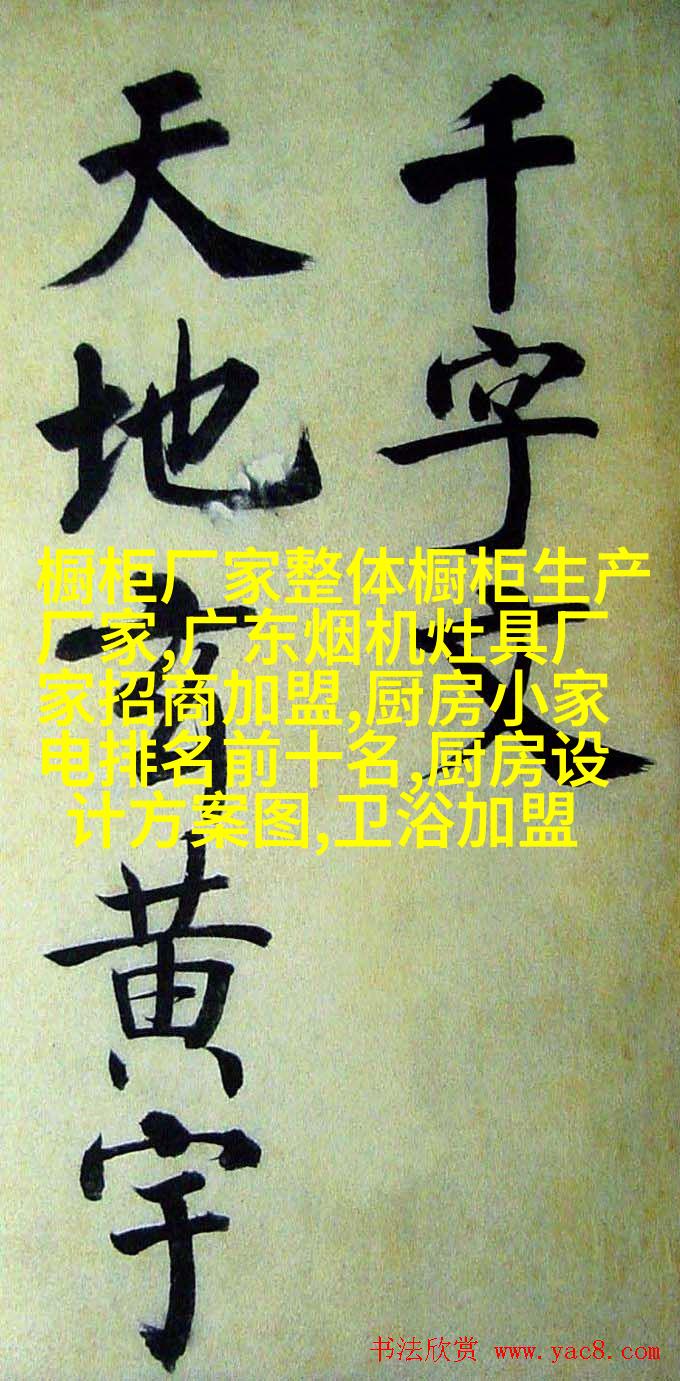 千字文
天地黄宇
橱柜厂家整体橱柜生产
厂家,广东烟机灶具厂
家招商加盟,厨房小家
电排名前十名,厨房设
计方案图,卫浴加盟
书法欣赏 www.yac8.com